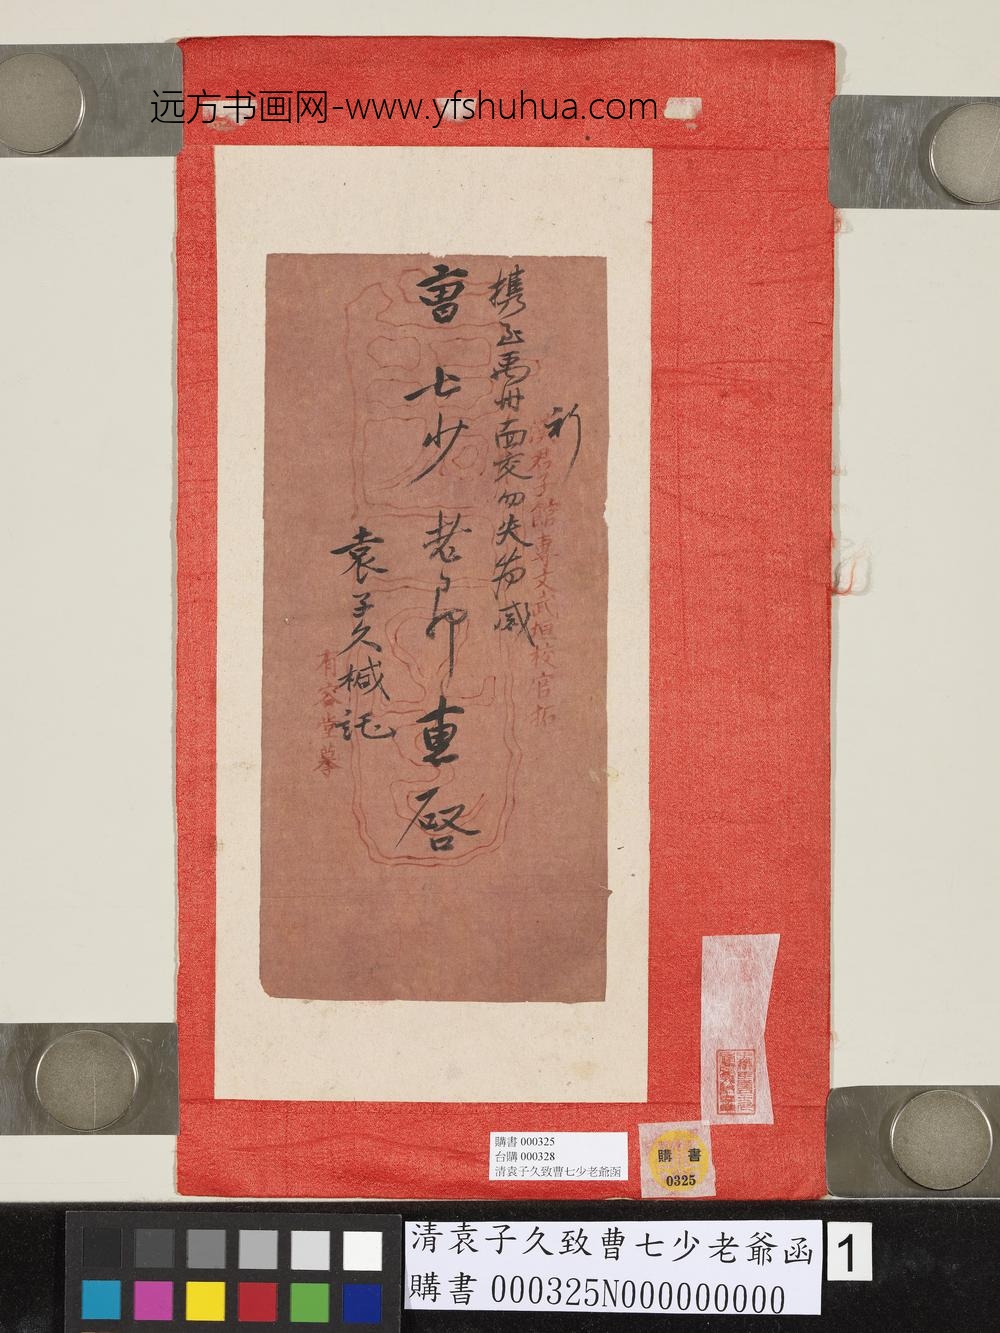 远方书画网-www.yfshuhua.com
祈
携至禹州面交勿失為感
曹七少老爺惠啓
袁子久椷託
君子館專文武垣校官拓
有容堂摹
購書 000325
台購 000328
清袁子久致曹七少老爺函
購 書
0325
清袁子久致曹七少老爺函
購書 000325N000000000
1